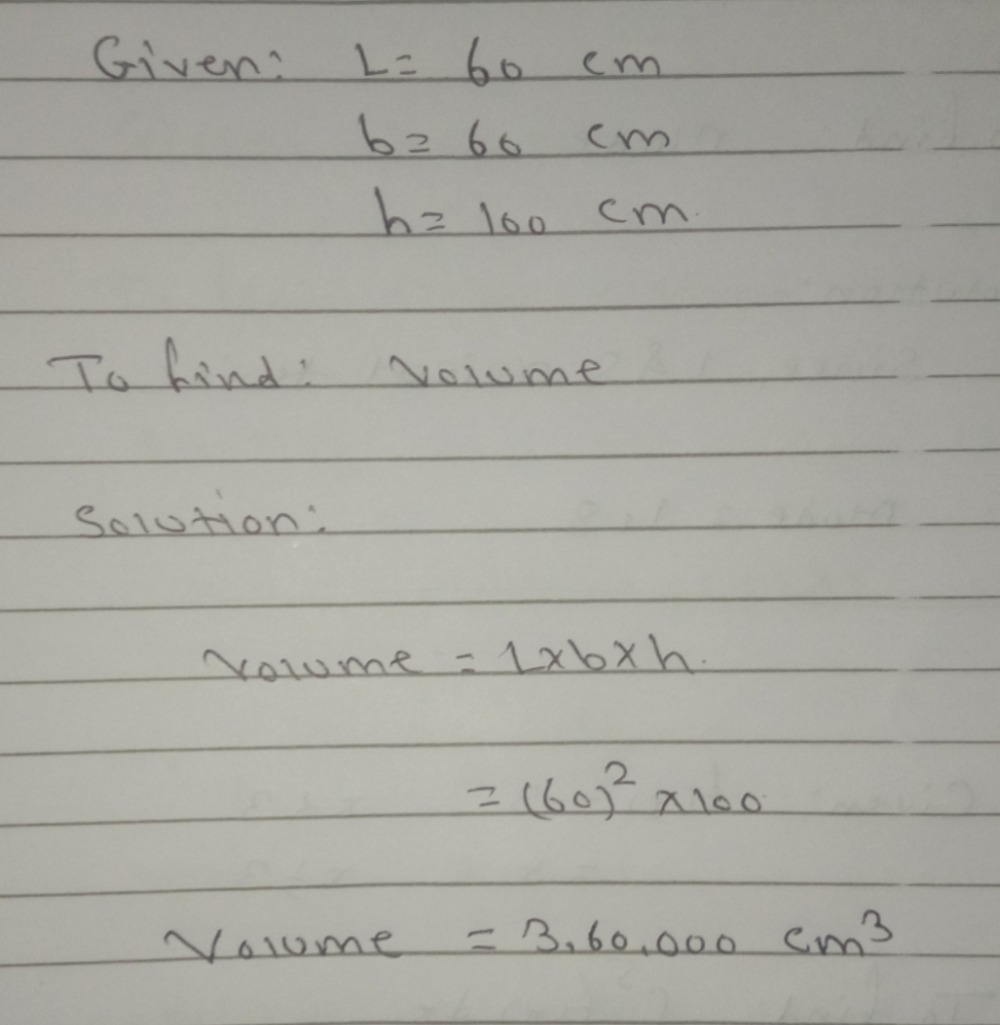 Given: L= 60 cm
b= 60 cm
h= 100 cm.
To find: Volume
Solution:
Volume = L×b×h.
= (60)² ×100
Volume = 3,60,000 cm³